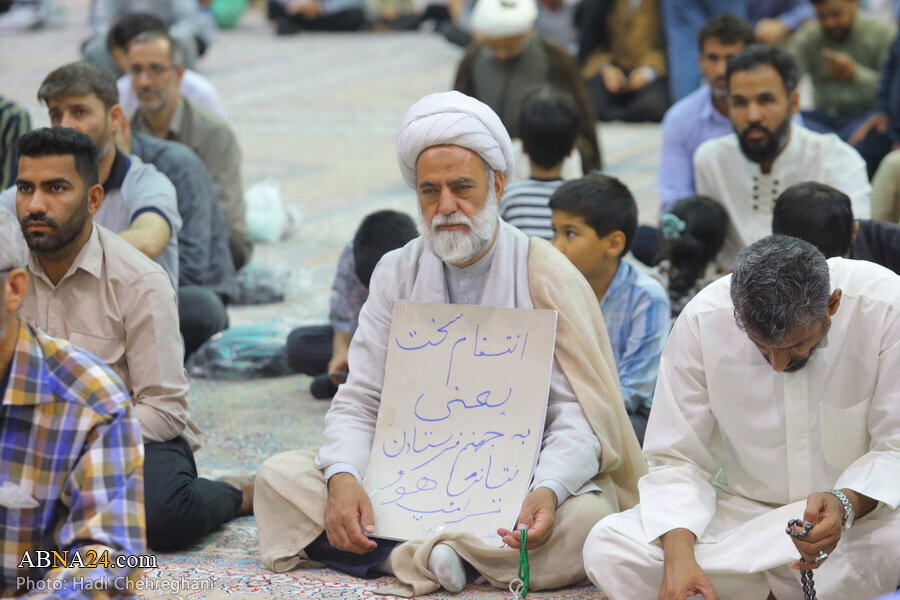 انتقام سخت
یعنی
به جهنم فرستادن
نتانیاهو
ترامپ
ABNA24.com
Photo: Hadi Cheharghani